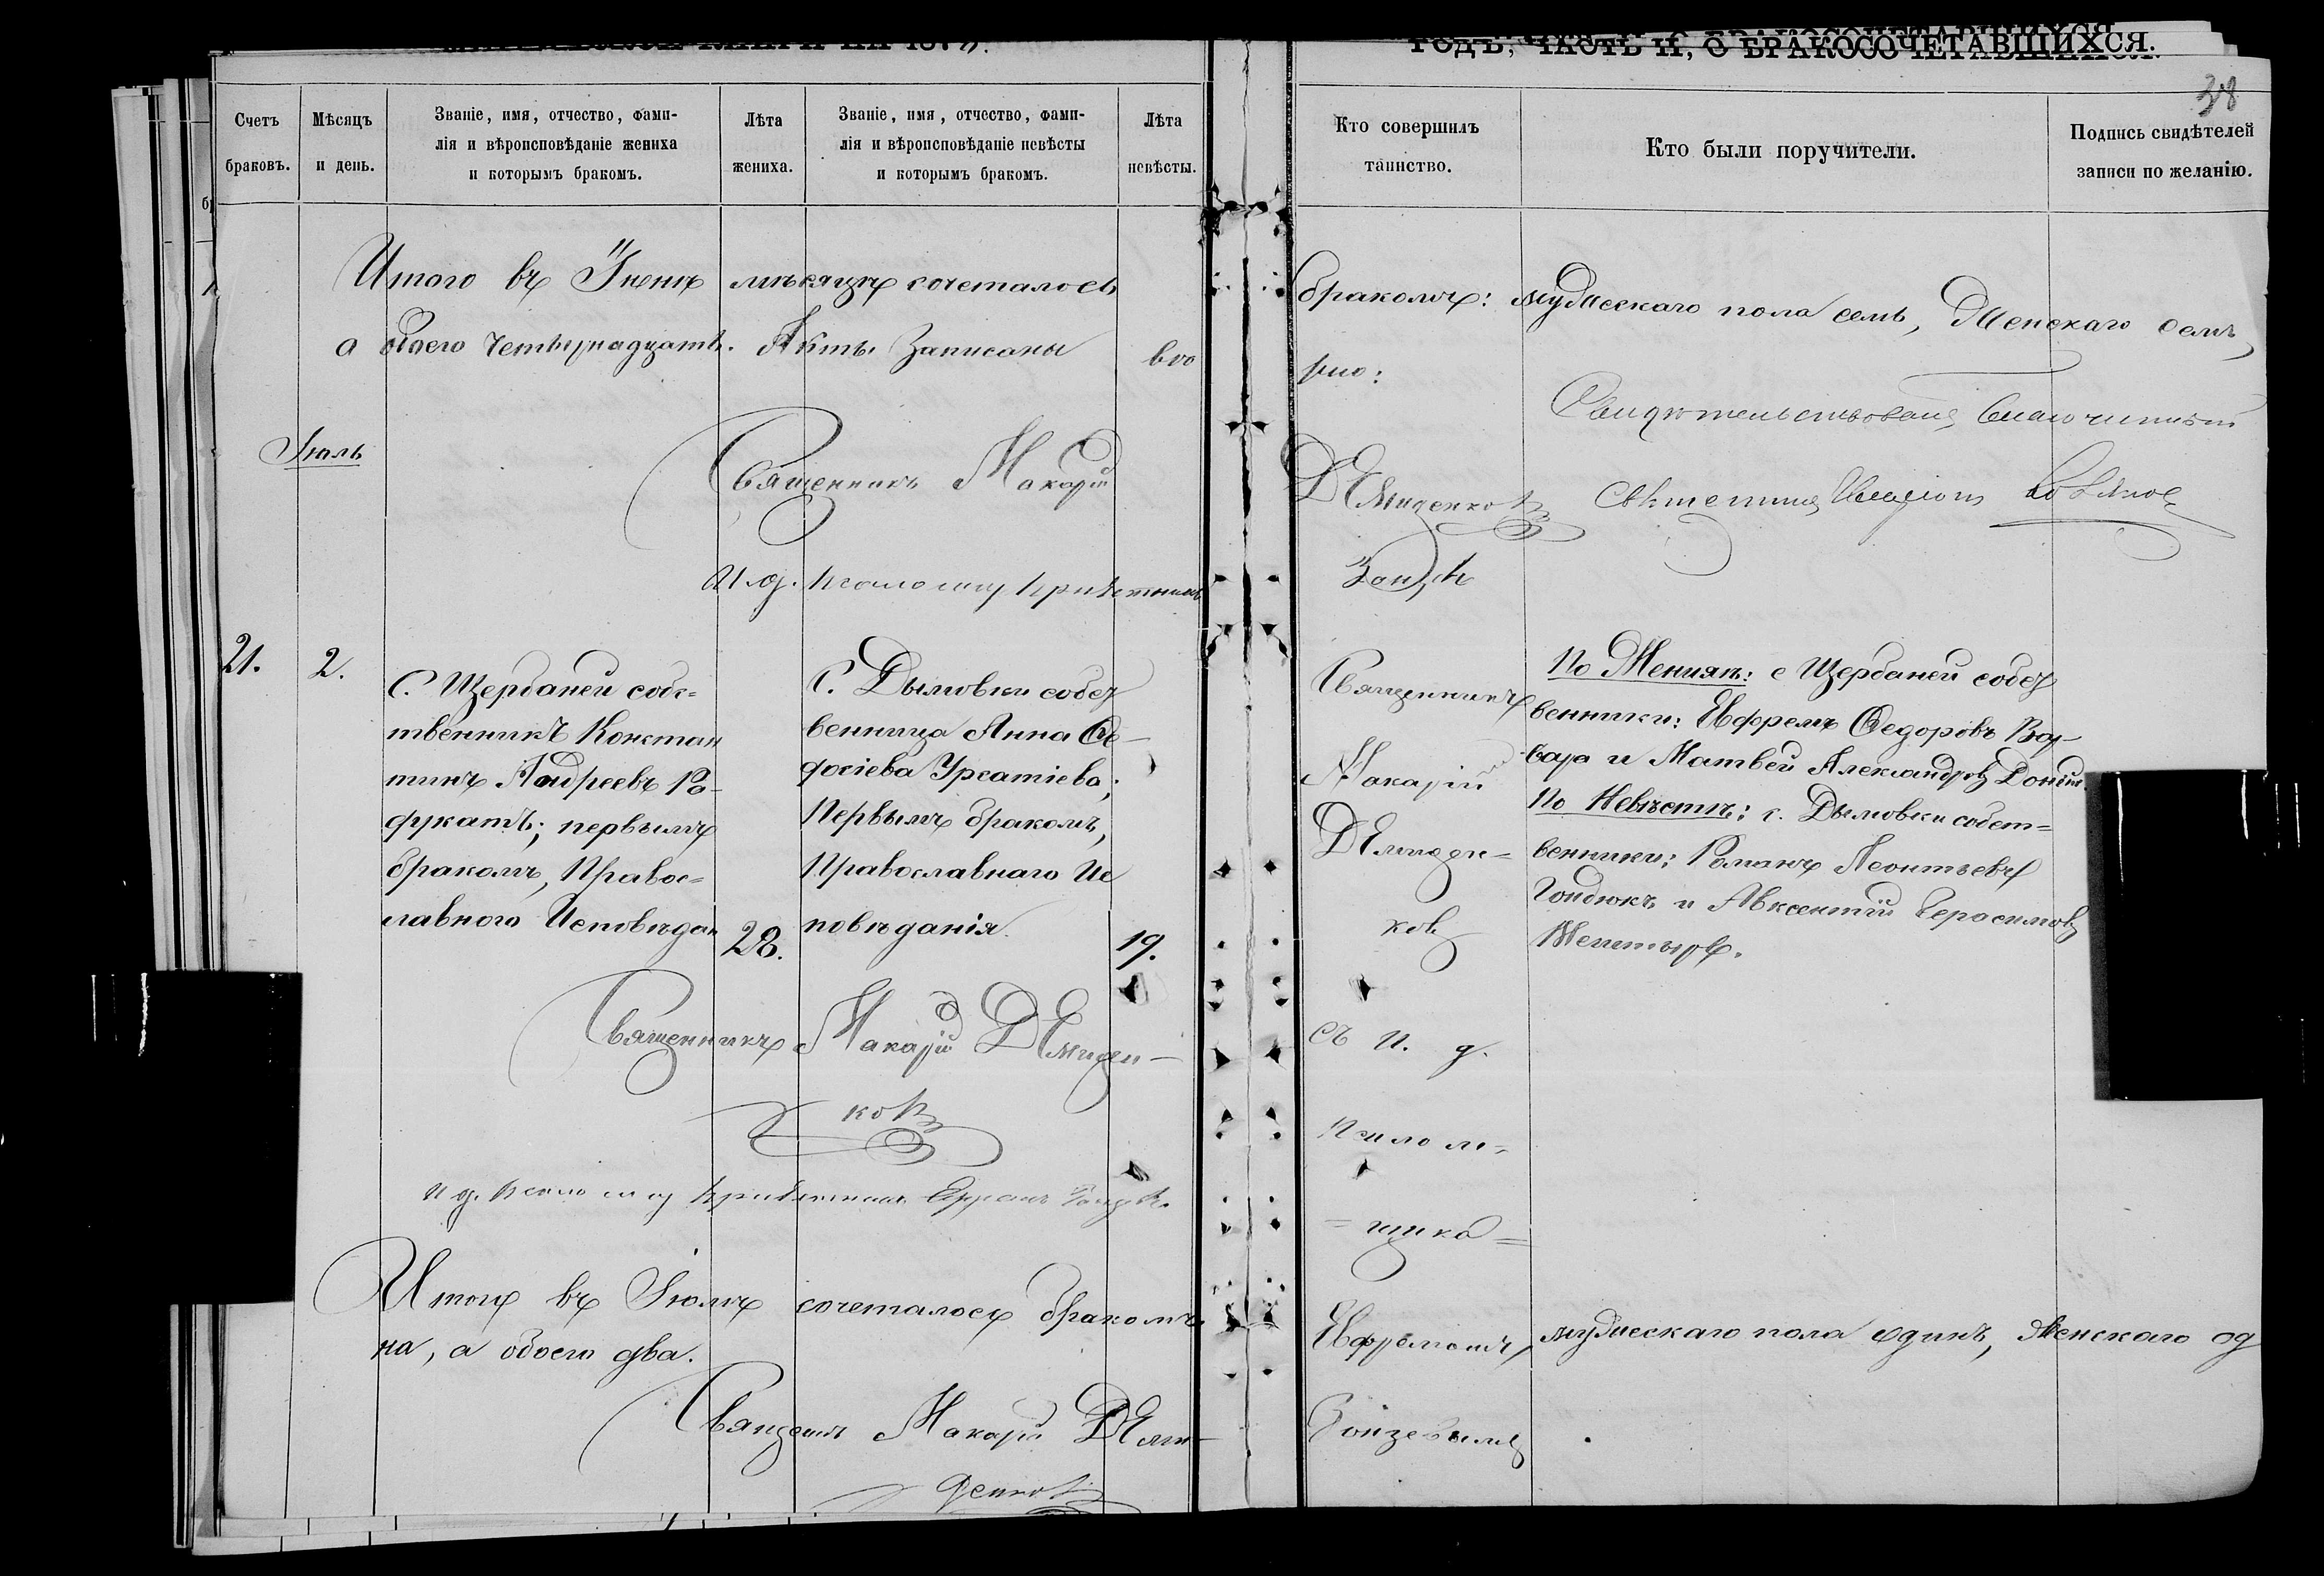 ГОДЪ, ЧАСТЬ II, О БРАКОСОЧЕТАВШИХСЯ.
38
Счетъ
браковъ.
Мѣсяцъ
и день.
Званіе, имя, отчество, фами-
лія и вѣроисповѣданіе жениха
и которымъ бракомъ.
Лѣта
жениха.
Званіе, имя, отчество, фами-
лія и вѣроисповѣданіе невѣсты
и которымъ бракомъ.
Лѣта
невѣсты.
Кто совершилъ
таинство.
Кто были поручители.
Подпись свидѣтелей
записи по желанію.
Итого въ Іюнѣ мѣсяцѣ сочеталось бракомъ: мужескаго пола семь, женскаго семь,
а обоего четырнадцать. Акты записаны вѣрно:
Свидѣтельствовалъ Благочинный
Іюль
Священникъ Макарій Демиденковъ
И. д. псаломщ
21.
2.
С. Щербаней собс-
твенникъ Констан
тинъ Андреевъ
первымъ
бракомъ, Правос-
лавного Исповѣдан
28.
С. Дымовки собст
венница Анна Ѳе-
досіева Урсатіева;
Первымъ бракомъ,
Православнаго Ис
повѣданія.
19.
Священникъ
Макарій
Демиден-
ков
съ И. д.
псалом-
щика
Ефремомъ
По Женихѣ: с Щербаней собст
венники: Ефремъ Ѳедоровъ
и Матвей Александровъ
По Невѣстѣ: с. Дымовки собст-
венники: Романъ Леонтьевъ
Гондюкъ и Авксентій Герасимовъ
Священникъ Макарій Демиден-
ковъ
и д. псаломщ Ефремъ
Итого въ Іюлѣ сочеталось бракомъ мужескаго пола одинъ, женскаго од
на, а обоего два.
Священникъ Макарій Деми-
денковъ